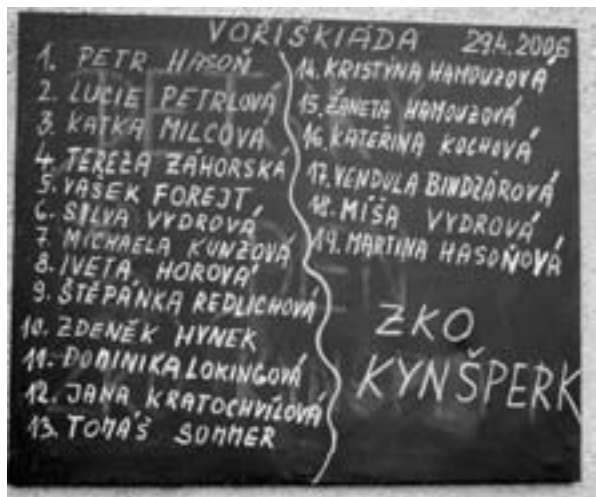 VOŘÍŠKIÁDA 29.4.2006
1. PETR HASOŇ
2. LUCIE PETRLOVÁ
3. KATKA MILCOVÁ
4. TEREZA ZÁHORSKÁ
5. VAŠEK FOREJT
6. SILVA VYDROVÁ
7. MICHAELA KUNZOVÁ
8. IVETA HOROVÁ
9. ŠTĚPÁNKA REDLICHOVÁ
10. ZDENĚK HYNEK
11. DOMINIKA LOKINGOVÁ
12. JANA KRATOCHVÍLOVÁ
13. TOMÁŠ SOMMER
14. KRISTÝNA HAMOUZOVÁ
15. ŽANETA HAMOUZOVÁ
16. KATEŘINA KOCHOVÁ
17. VENDULA BINDZÁROVÁ
18. MÍŠA VYDROVÁ
19. MARTINA HASOŇOVÁ
ZKO
KYNŠPERK